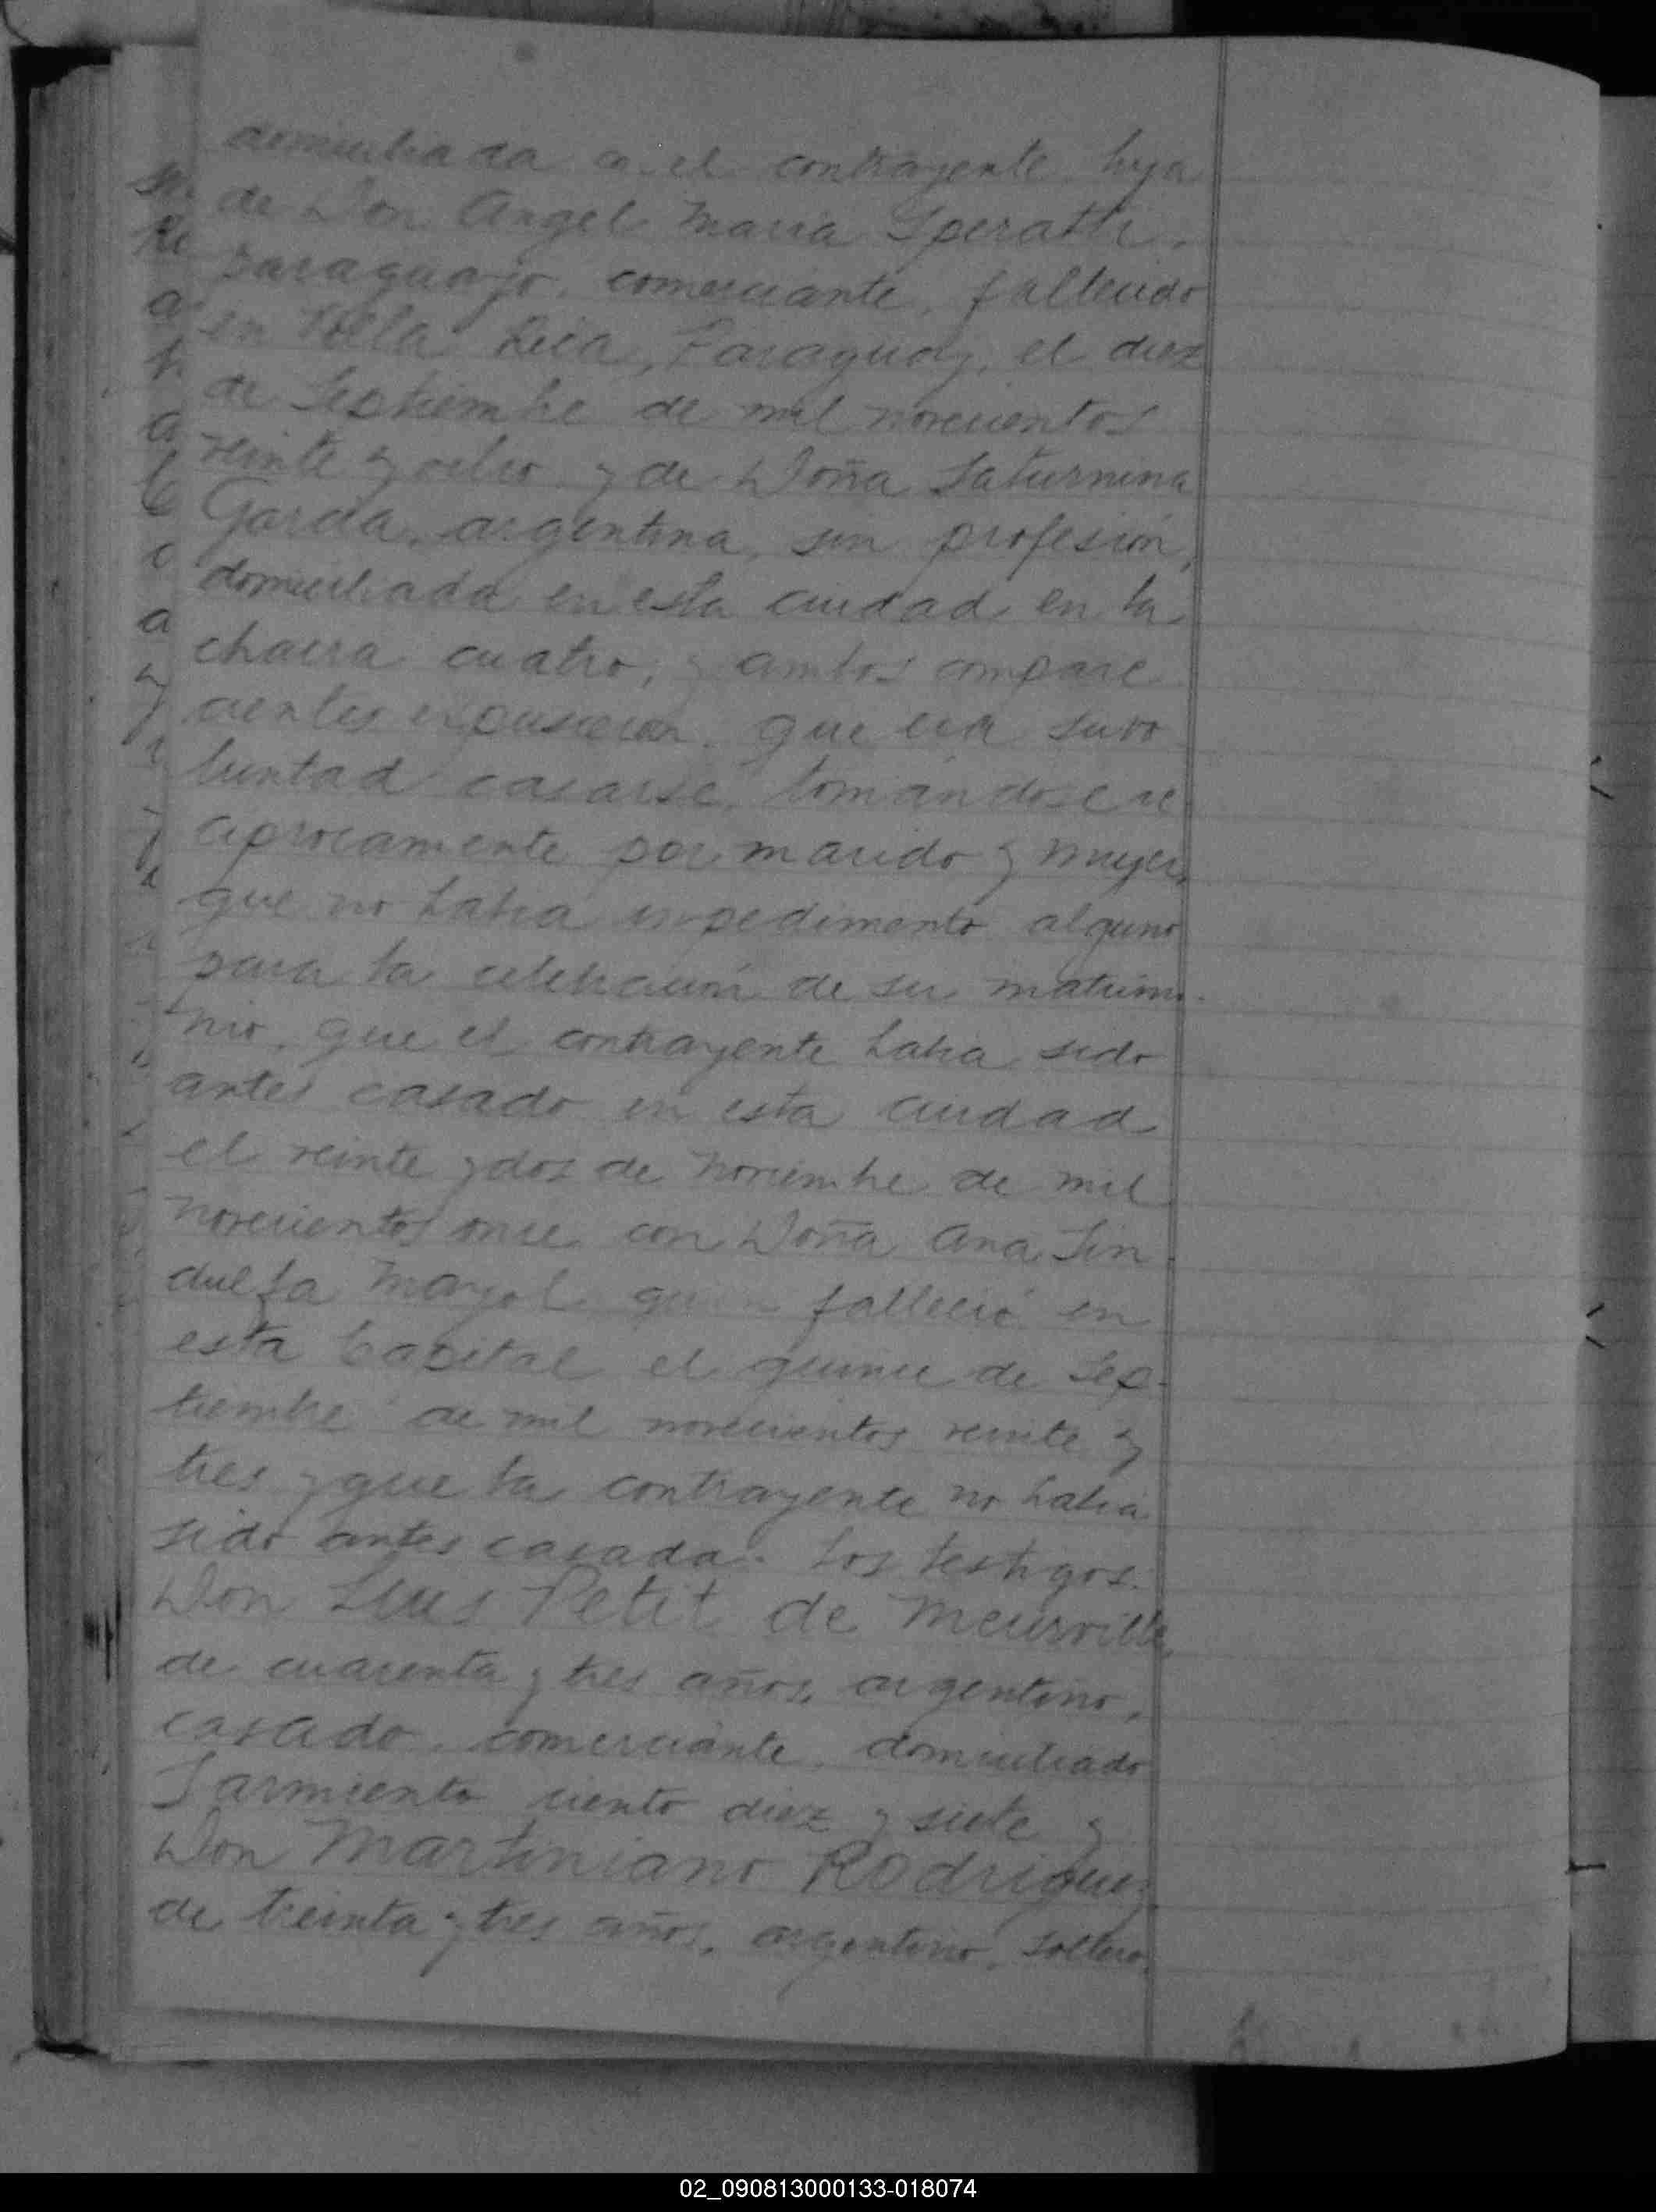 domiciliada con el contrayente, hija
de Don Angel Maria Speratti,
paraguayo, comerciante, fallecido
en Villa Rica, Paraguay, el diez
de Septiembre de mil novecientos
veinte y ocho y de Doña Saturnina
Garcia, argentina, sin profesión,
domiciliada en esta ciudad en la
chacra cuatro; y ambos compare
cientes expusieron que era su vo
luntad casarse, tomándose re
ciprocamente por marido y mujer,
que no había impedimento alguno
para la celebración de su matrimo-
nio, que el contrayente había sido
antes casado en esta ciudad
el veinte y dos de Noviembre de mil
novecientos once con Doña Ana Sin
dulfa Mayol quien falleció en
esta Capital el quince de Sep-
tiembre de mil novecientos veinte y
tres y que la contrayente no había
sido antes casada. Los testigos.
Don Luis Petit de Meurville,
de cuarenta y tres años, argentino,
casado, comerciante, domiciliado
Sarmiento ciento diez y siete y
Don Martiniano Rodriguez
de treinta y tres años, argentino, soltero,
02_090813000133-018074